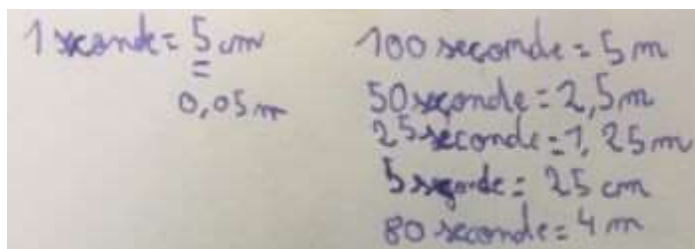 1 seconde = 5 cm
=
0,05 m
100 seconde = 5 m
50 seconde = 2,5 m
25 seconde = 1,25 m
5 segonde = 25 cm
80 seconde = 4 m